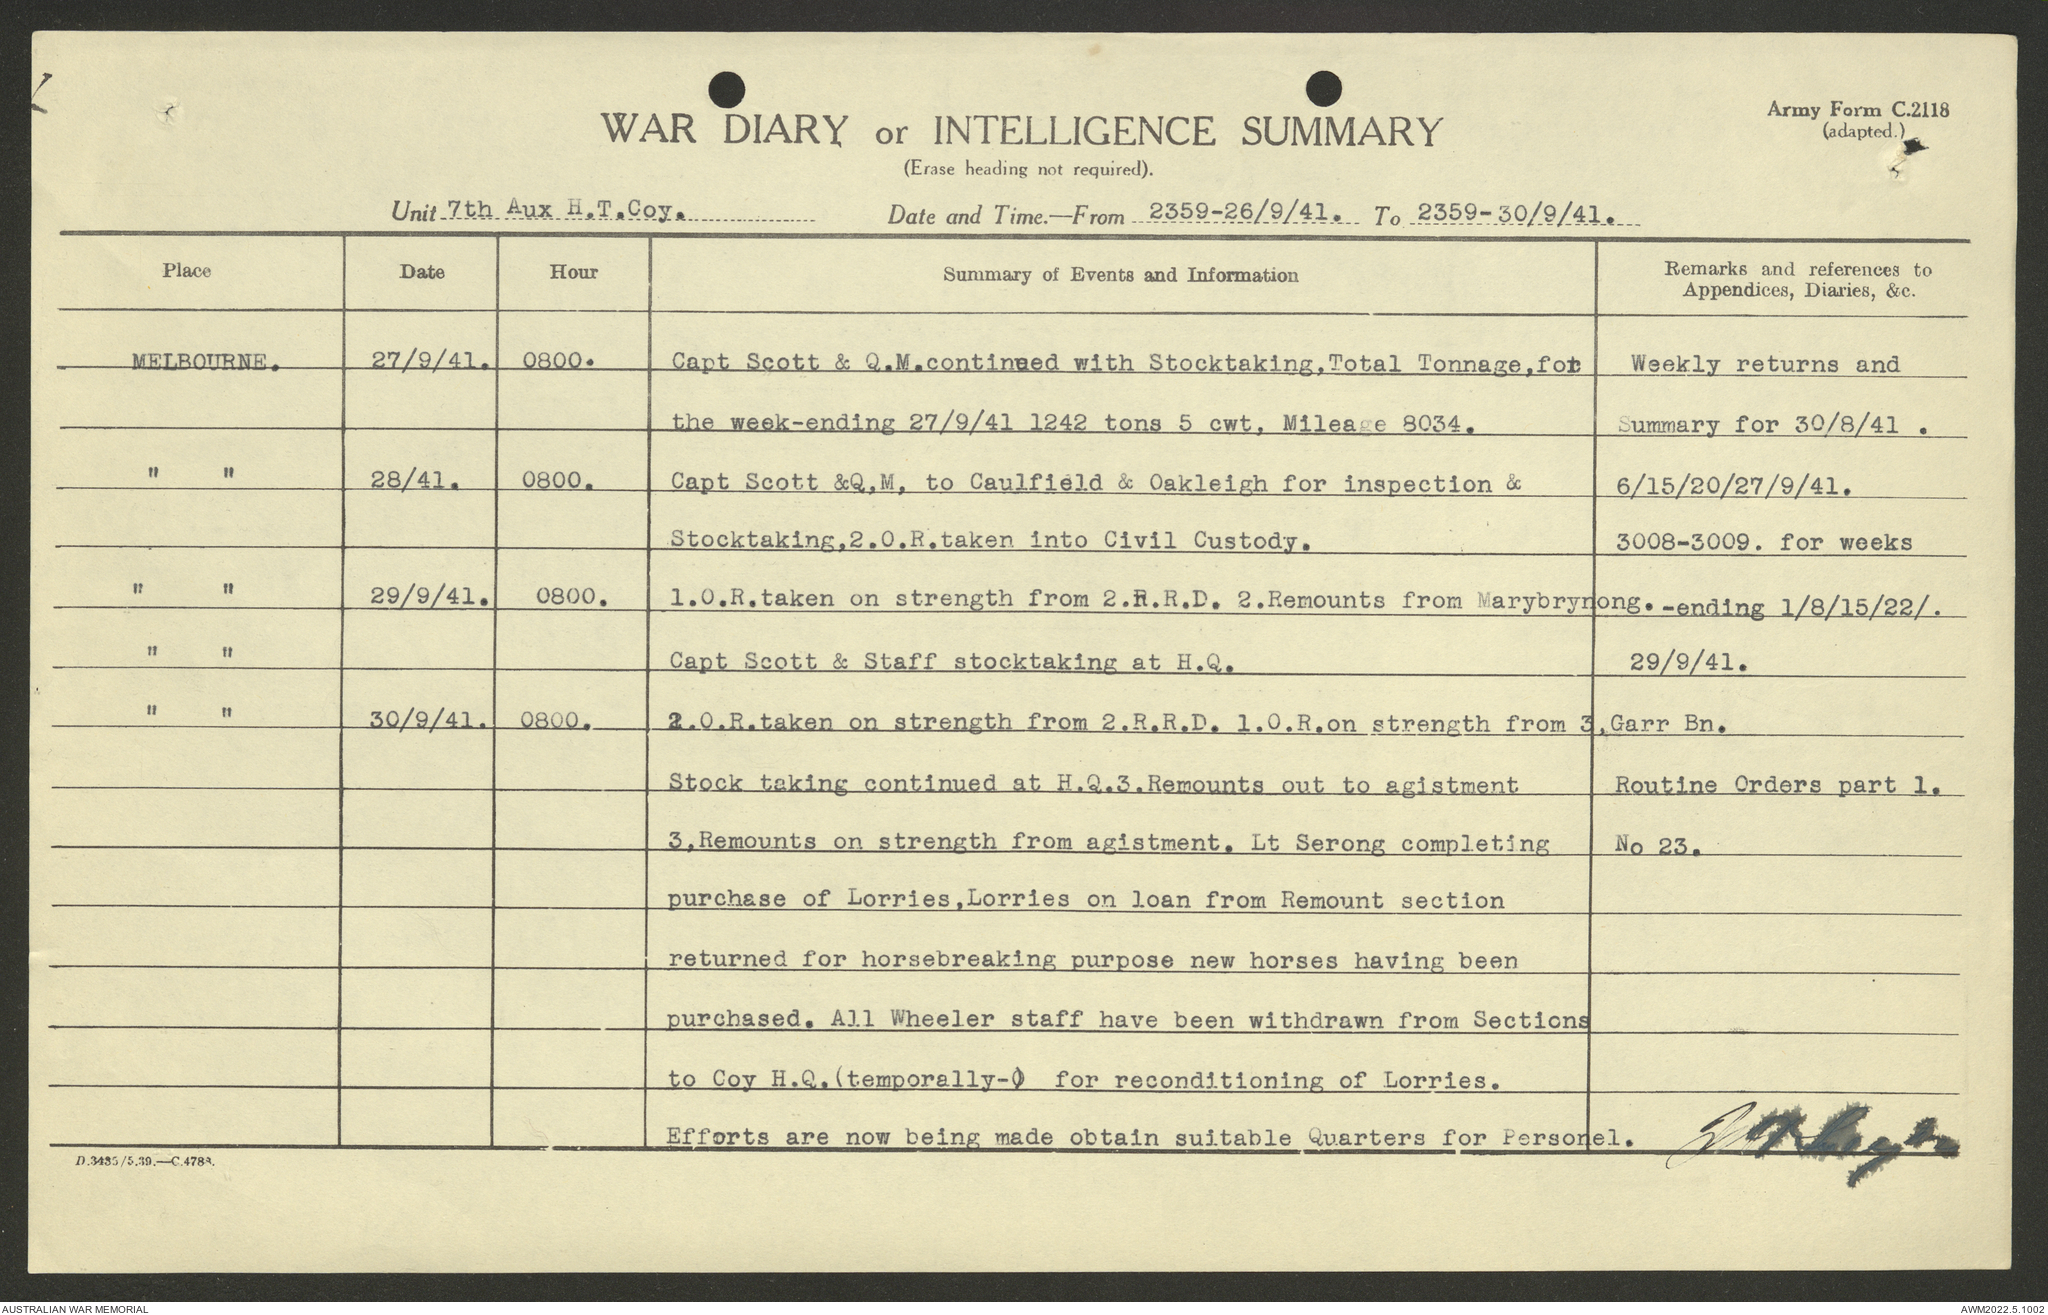 WAR DIARY or INTELLIGENCE SUMMARY
(Erase heading not required).
Army Form C.2118
(adapted.)
Unit 7th Aux H.T.Coy.
Date and Time.—From 2359-26/9/41. To 2359-30/9/41.
Place Date Hour Summary of Events and Information Remarks and references to
Appendices, Diaries, &c.
MELBOURNE. 27/9/41. 0800. Capt Scott & Q.M.continued with Stocktaking,Total Tonnage,for Weekly returns and
the week-ending 27/9/41 1242 tons 5 cwt, Mileage 8034. Summary for 30/8/41 .
" " 28/41. 0800. Capt Scott &Q,M, to Caulfield & Oakleigh for inspection & 6/15/20/27/9/41.
Stocktaking,2.O.R.taken into Civil Custody. 3008-3009. for weeks
" " 29/9/41. 0800. 1.O.R.taken on strength from 2.R.R.D. 2.Remounts from Marybrynong. -ending 1/8/15/22/.
" " Capt Scott & Staff stocktaking at H.Q. 29/9/41.
" " 30/9/41. 0800. 2.O.R.taken on strength from 2.R.R.D. 1.O.R.on strength from 3,Garr Bn.
Stock taking continued at H.Q.3.Remounts out to agistment Routine Orders part 1.
3,Remounts on strength from agistment. Lt Serong completing No 23.
purchase of Lorries,Lorries on loan from Remount section
returned for horsebreaking purpose new horses having been
purchased. All Wheeler staff have been withdrawn from Sections
to Coy H.Q.(temporally-) for reconditioning of Lorries.
Efforts are now being made obtain suitable Quarters for Personel.
D.3435/5.39.—C.4788.
AUSTRALIAN WAR MEMORIAL
AWM2022.5.1002